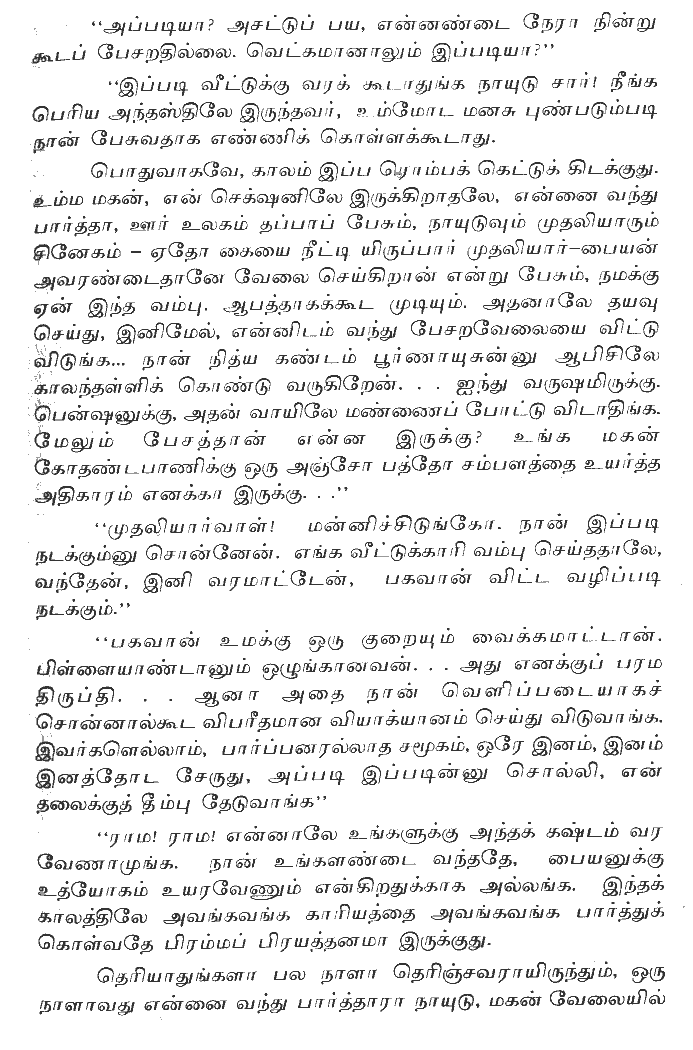 ‘‘அப்படியா? அசட்டுப் பய, என்னண்டை நேரா நின்று
கூடப் பேசறதில்லை. வெட்கமானாலும் இப்படியா?’’
‘‘இப்படி வீட்டுக்கு வரக் கூடாதுங்க நாயுடு சார்! நீங்க
பெரிய அந்தஸ்திலே இருந்தவர், உம்மோட மனசு புண்படும்படி
நான் பேசுவதாக எண்ணிக் கொள்ளக்கூடாது.
பொதுவாகவே, காலம் இப்ப ரொம்பக் கெட்டுக் கிடக்குது.
உம்ம மகன், என் செக்ஷனிலே இருக்கிறாதலே, என்னை வந்து
பார்த்தா, ஊர் உலகம் தப்பாப் பேசும், நாயுடுவும் முதலியாரும்
சினேகம் – ஏதோ கையை நீட்டி யிருப்பார் முதலியார்–பையன்
அவரண்டைதானே வேலை செய்கிறான் என்று பேசும், நமக்கு
ஏன் இந்த வம்பு. ஆபத்தாகக்கூட முடியும். அதனாலே தயவு
செய்து, இனிமேல், என்னிடம் வந்து பேசறவேலையை விட்டு
விடுங்க... நான் நித்ய கண்டம் பூர்ணாயுசுன்னு ஆபிசிலே
காலந்தள்ளிக் கொண்டு வருகிறேன். . . ஐந்து வருஷமிருக்கு.
பென்ஷனுக்கு, அதன் வாயிலே மண்ணைப் போட்டு விடாதிங்க.
மேலும் பேசத்தான் என்ன இருக்கு? உங்க மகன்
கோதண்டபாணிக்கு ஒரு அஞ்சோ பத்தோ சம்பளத்தை உயர்த்த
அதிகாரம் எனக்கா இருக்கு. . .’’
‘‘முதலியார்வாள்! மன்னிச்சிடுங்கோ. நான் இப்படி
நடக்கும்னு சொன்னேன். எங்க வீட்டுக்காரி வம்பு செய்ததாலே,
வந்தேன், இனி வரமாட்டேன், பகவான் விட்ட வழிப்படி
நடக்கும்.’’
‘‘பகவான் உமக்கு ஒரு குறையும் வைக்கமாட்டான்.
பிள்ளையாண்டானும் ஒழுங்கானவன். . . அது எனக்குப் பரம
திருப்தி. . . ஆனா அதை நான் வெளிப்படையாகச்
சொன்னால்கூட விபரீதமான வியாக்யானம் செய்து விடுவாங்க.
இவர்களெல்லாம், பார்ப்பனரல்லாத சமூகம், ஒரே இனம், இனம்
இனத்தோட சேருது, அப்படி இப்படின்னு சொல்லி, என்
தலைக்குத் தீம்பு தேடுவாங்க’’
‘‘ராம! ராம! என்னாலே உங்களுக்கு அந்தக் கஷ்டம் வர
வேணாமுங்க. நான் உங்களண்டை வந்ததே, பையனுக்கு
உத்யோகம் உயரவேணும் என்கிறதுக்காக அல்லங்க. இந்தக்
காலத்திலே அவங்கவங்க காரியத்தை அவங்கவங்க பார்த்துக்
கொள்வதே பிரம்மப் பிரயத்தனமா இருக்குது.
தெரியாதுங்களா பல நாளா தெரிஞ்சவராயிருந்தும், ஒரு
நாளாவது என்னை வந்து பார்த்தாரா நாயுடு, மகன் வேலையில்